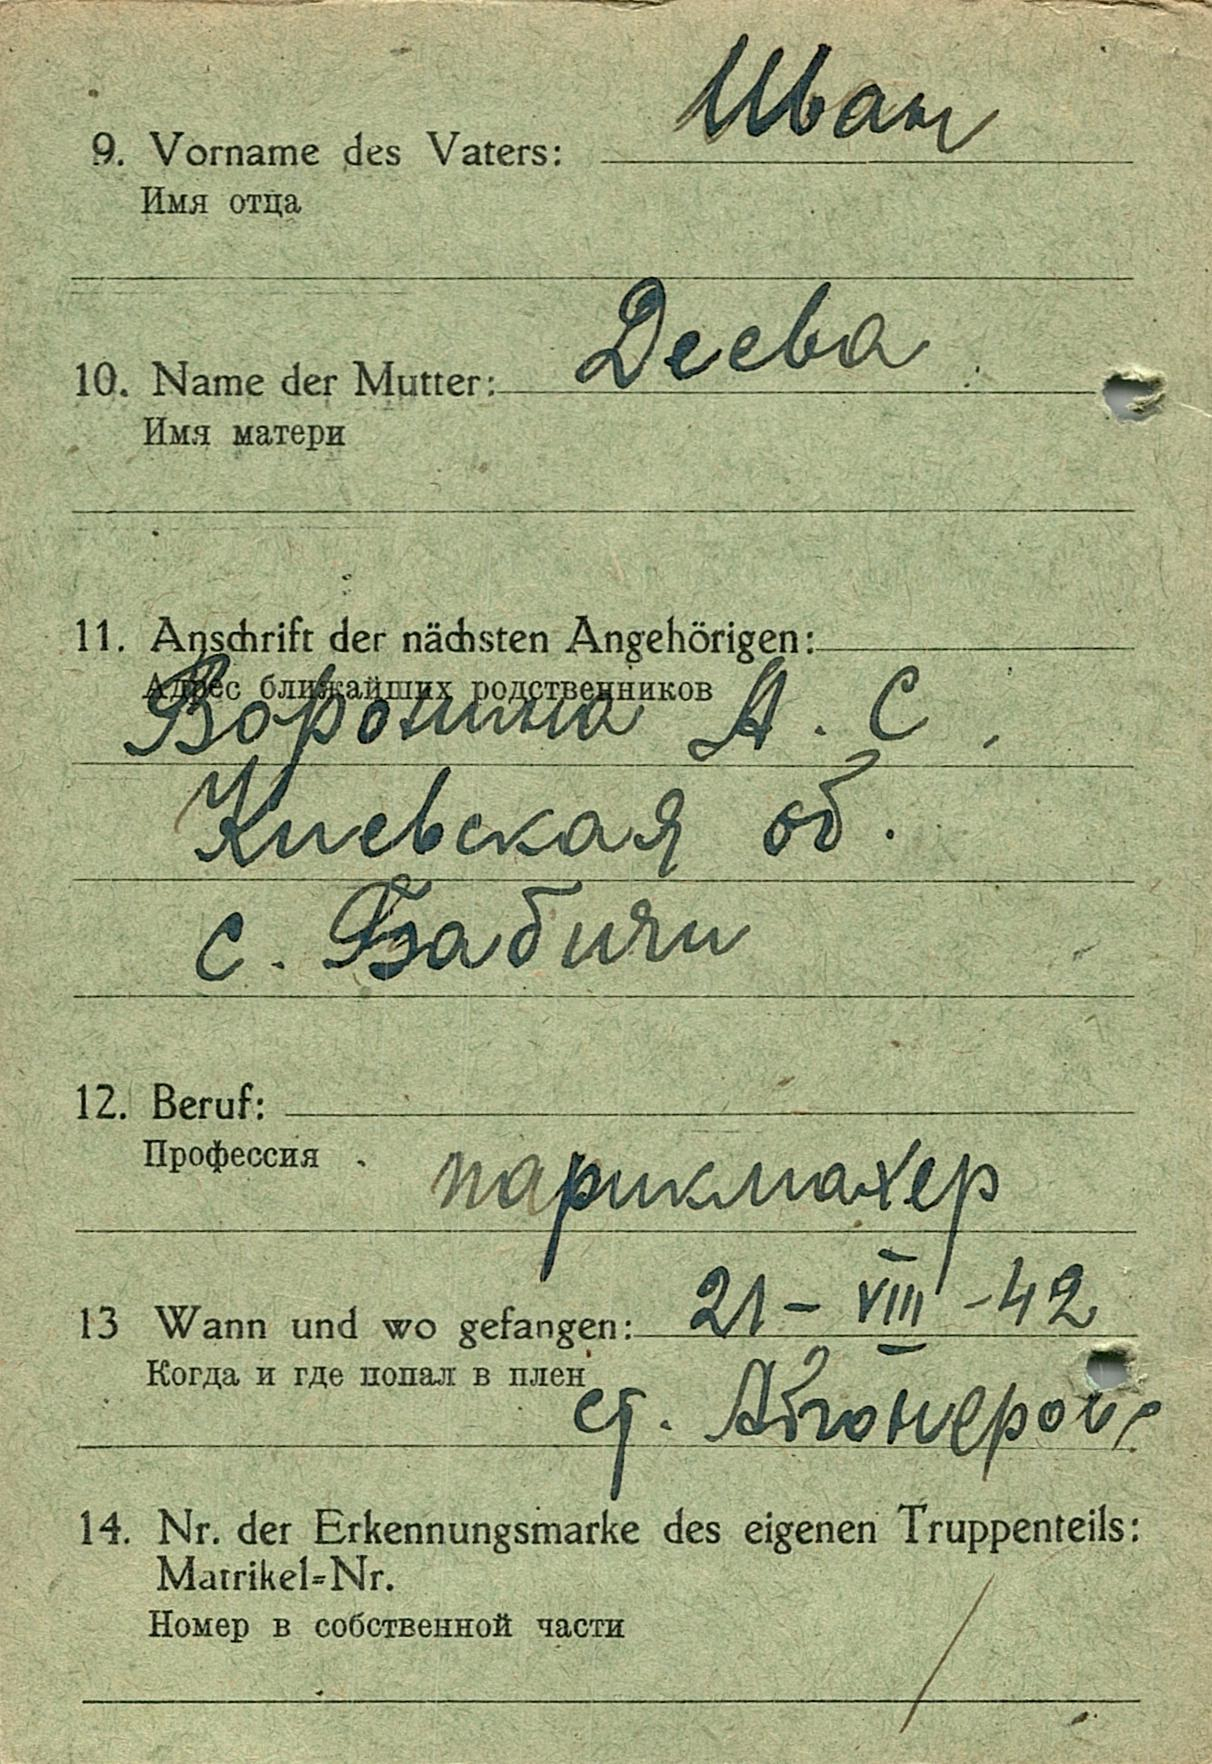 Иван
9. Vorname des Vaters:
Имя отца
Деева
10. Name der Mutter:
Имя матери
11. Anschrift der nächsten Angehörigen:
Адрес ближайших родственников
Воронина А. С.
Киевская об.
с. Бабичи
12. Beruf:
Профессия
парикмахер
13 Wann und wo gefangen: 21-VIII-42
Когда и где попал в плен
ст. Абганерово
14. Nr. der Erkennungsmarke des eigenen Truppenteils:
Matrikel=Nr.
Номер в собственной части
/